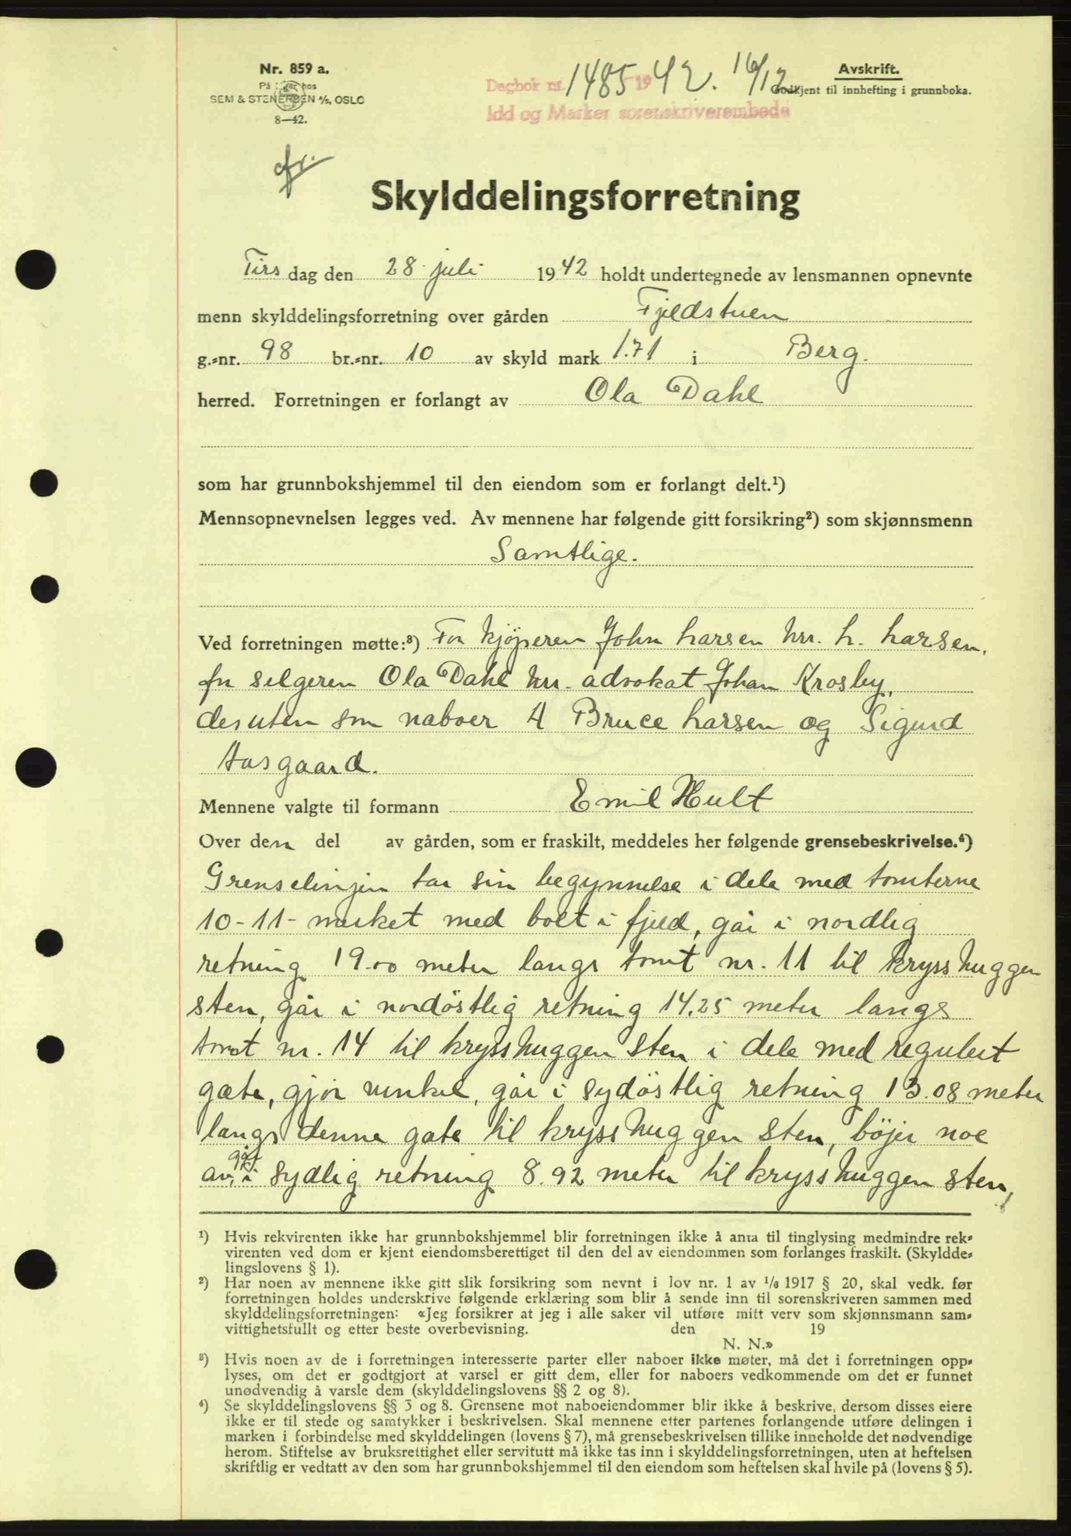 Nr. 859 a.
På lager hos
SEM & STENERSEN A/S, OSLO
8—42.
Dagbok nr. 1485 1942. 16/12
Idd og Marker sorenskriverembede
Avskrift.
Godkjent til innhefting i grunnboka.
Skylddelingsforretning
Tirsdag den 28 juli 1942 holdt undertegnede av lensmannen opnevnte
menn skylddelingsforretning over gården Fjeldstuen
g.-nr. 98 br.-nr. 10 av skyld mark 1.71 i Berg.
herred. Forretningen er forlangt av Ola Dahl
som har grunnbokshjemmel til den eiendom som er forlangt delt.¹)
Mennsopnevnelsen legges ved. Av mennene har følgende gitt forsikring²) som skjønnsmenn
Samtlige.
Ved forretningen møtte:³) For kjöperen John Larsen hrr. L. Larsen,
for selgeren Ola Dahl hrr. advokat Johan Krosby,
desuten som naboer A Bruce Larsen og Sigurd
Aasgaard.
Mennene valgte til formann Emil Hult
Over den del av gården, som er fraskilt, meddeles her følgende grensebeskrivelse.⁴)
Grenselinjen tar sin begynnelse i dele med tomterne
10-11- merket med bolt i fjeld, går i nordlig
retning 19.00 meter langs tomt nr. 11 til krysshuggen
sten, går i nordöstlig retning 14,25 meter langs
tomt nr. 14 til krysshuggen sten i dele med regulert
gate, gjör vinkel, går i sydöstlig retning 13.08 meter
langs denne gate til krysshuggen sten, böjer noe
av, går i sydlig retning 8.92 meter til krysshuggen sten,
¹) Hvis rekvirenten ikke har grunnbokshjemmel blir forretningen ikke å anta til tinglysing medmindre rek-
virenten ved dom er kjent eiendomsberettiget til den del av eiendommen som forlanges fraskilt. (Skyldde-
lingslovens § 1).
²) Har noen av mennene ikke gitt slik forsikring som nevnt i lov nr. 1 av 1/6 1917 § 20, skal vedk. før
forretningen holdes underskrive følgende erklæring som blir å sende inn til sorenskriveren sammen med
skylddelingsforretningen: «Jeg forsikrer at jeg i alle saker vil utføre mitt verv som skjønnsmann sam-
vittighetsfullt og etter beste overbevisning. den 19
N. N.»
³) Hvis noen av de i forretningen interesserte parter eller naboer ikke møter, må det i forretningen opp-
lyses, om det er godtgjort at varsel er gitt dem, eller for naboers vedkommende om det er funnet
unødvendig å varsle dem (skylddelingslovens §§ 2 og 8).
⁴) Se skylddelingslovens §§ 3 og 8. Grensene mot naboeiendommer blir ikke å beskrive, dersom disses eiere
ikke er til stede og samtykker i beskrivelsen. Skal mennene etter partenes forlangende utføre delingen i
marken i forbindelse med skylddelingen (lovens § 7), må grensebeskrivelsen tillike inneholde det nødvendige
herom. Stiftelse av bruksrettighet eller servitutt må ikke tas inn i skylddelingsforretningen, uten at heftelsen
skriftlig er vedtatt av den som har grunnbokshjemmel til den eiendom som heftelsen skal hvile på (lovens § 5).